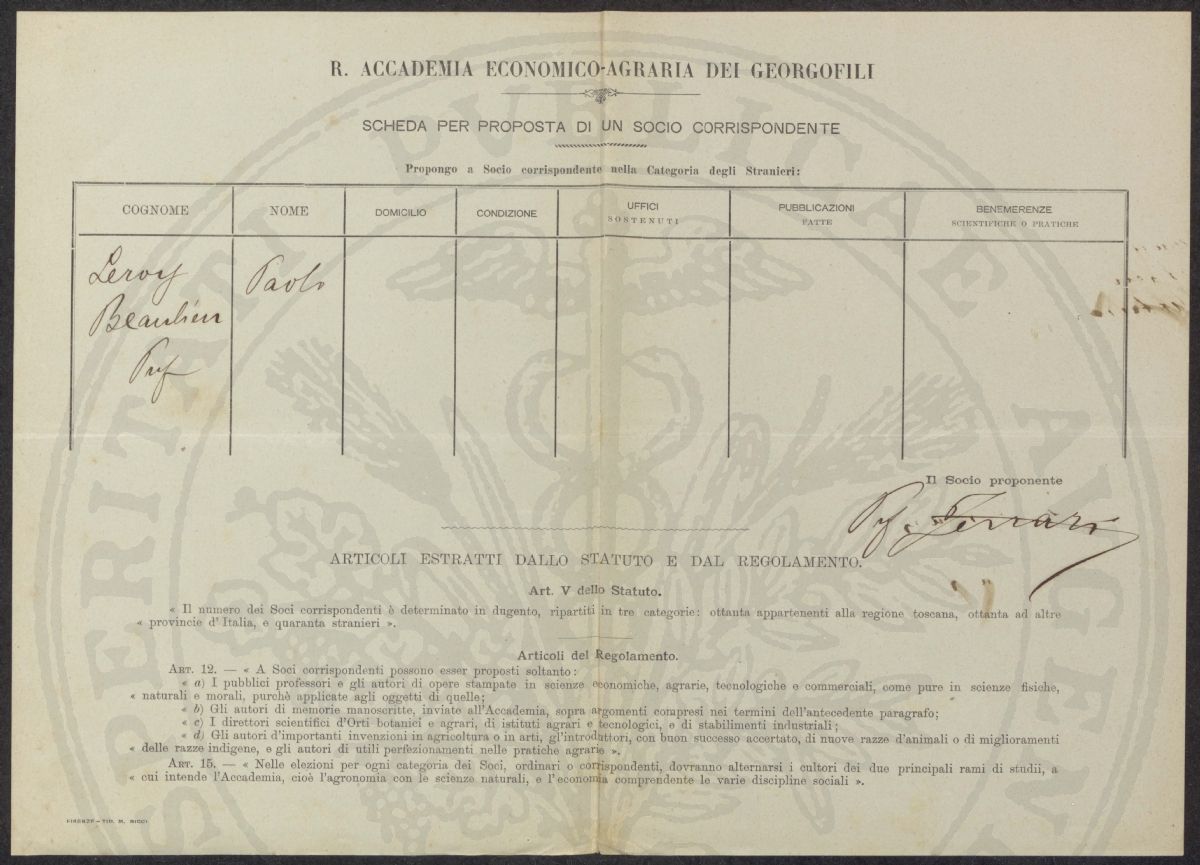 R. ACCADEMIA ECONOMICO-AGRARIA DEI GEORGOFILI
SCHEDA PER PROPOSTA DI UN SOCIO CORRISPONDENTE
Propongo a Socio corrispondente nella Categoria degli Stranieri:
COGNOME NOME DOMICILIO CONDIZIONE UFFICI SOSTENUTI PUBBLICAZIONI FATTE BENEMERENZE SCIENTIFICHE O PRATICHE
Leroy Paolo
Beaulieu
Prof
Il Socio proponente
Prof. Ferrari
ARTICOLI ESTRATTI DALLO STATUTO E DAL REGOLAMENTO.
Art. V dello Statuto.
« Il numero dei Soci corrispondenti è determinato in dugento, ripartiti in tre categorie: ottanta appartenenti alla regione toscana, ottanta ad altre
« provincie d'Italia, e quaranta stranieri ».
Articoli del Regolamento.
ART. 12. — « A Soci corrispondenti possono esser proposti soltanto:
« a) I pubblici professori e gli autori di opere stampate in scienze economiche, agrarie, tecnologiche e commerciali, come pure in scienze fisiche,
« naturali e morali, purchè applicate agli oggetti di quelle;
« b) Gli autori di memorie manoscritte, inviate all'Accademia, sopra argomenti compresi nei termini dell'antecedente paragrafo;
« c) I direttori scientifici d'Orti botanici e agrari, di istituti agrari e tecnologici, e di stabilimenti industriali;
« d) Gli autori d'importanti invenzioni in agricoltura o in arti, gl'introduttori, con buon successo accertato, di nuove razze d'animali o di miglioramenti
« delle razze indigene, e gli autori di utili perfezionamenti nelle pratiche agrarie ».
ART. 15. — « Nelle elezioni per ogni categoria dei Soci, ordinari o corrispondenti, dovranno alternarsi i cultori dei due principali rami di studii, a
« cui intende l'Accademia, cioè l'agronomia con le scienze naturali, e l'economia comprendente le varie discipline sociali ».
FIRENZE - TIP. M. RICCI